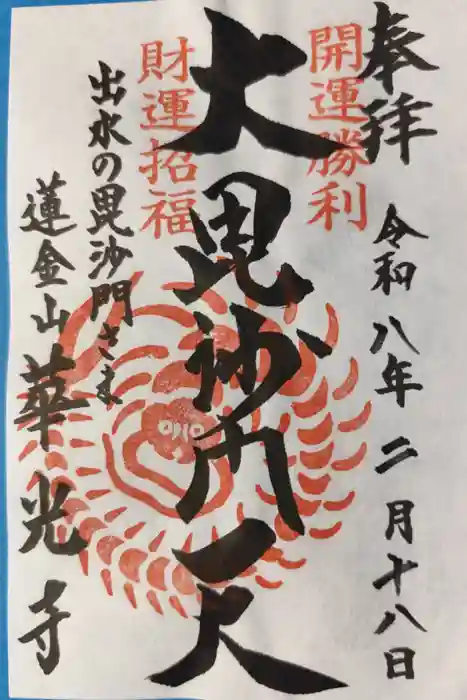 奉拝
令和八年二月十八日
開運勝利
大毘沙門天
財運招福
出水の毘沙門さま
蓮金山華光寺